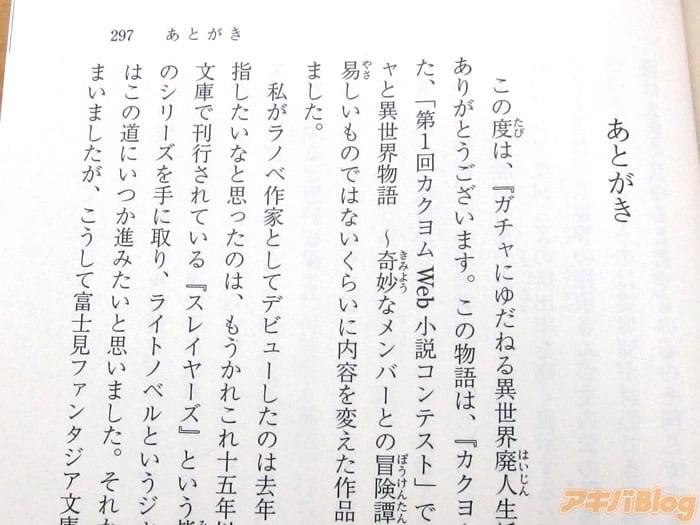 297 あとがき
あとがき
この度は、『ガチャにゆだねる異世界廃人生
ありがとうございます。この物語は、『カクヨ
た、「第1回カクヨムWeb小説コンテスト」で
ャと異世界物語 ～奇妙なメンバーとの冒険譚
易しいものではないくらいに内容を変えた作品
ました。
私がラノベ作家としてデビューしたのは去年
指したいなと思ったのは、もうかれこれ十五年
文庫で刊行されている『スレイヤーズ』という
のシリーズを手に取り、ライトノベルというジ
はこの道にいつか進みたいと思いました。それ
まいましたが、こうして富士見ファンタジア文庫
アキバBlog